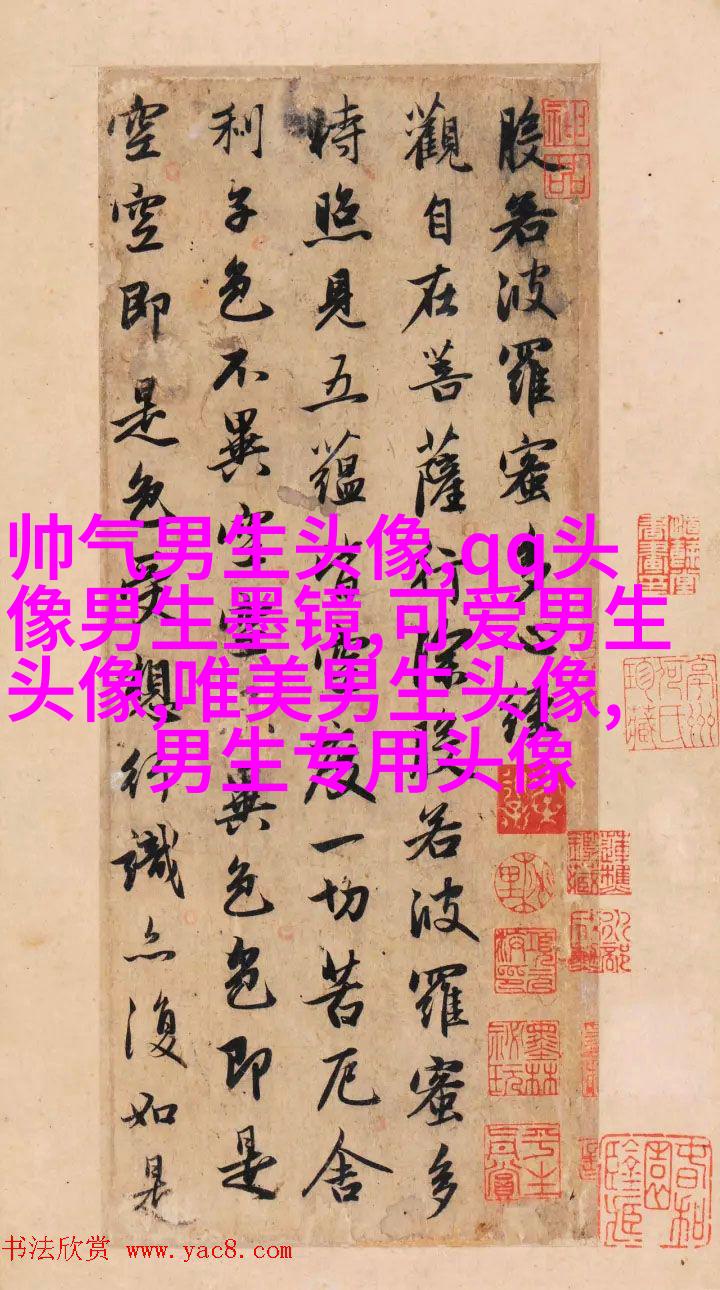 般若波羅蜜多心經
觀自在菩薩行深般若波羅蜜多
時照見五蘊皆空度一切苦厄舍
利子色不異空空不異色色即是
空空即是色受想行識亦復如是
帅气男生头像,qq头
像男生墨镜,可爱男生
头像,唯美男生头像,
男生专用头像
神品
书法欣赏 www.yac8.com